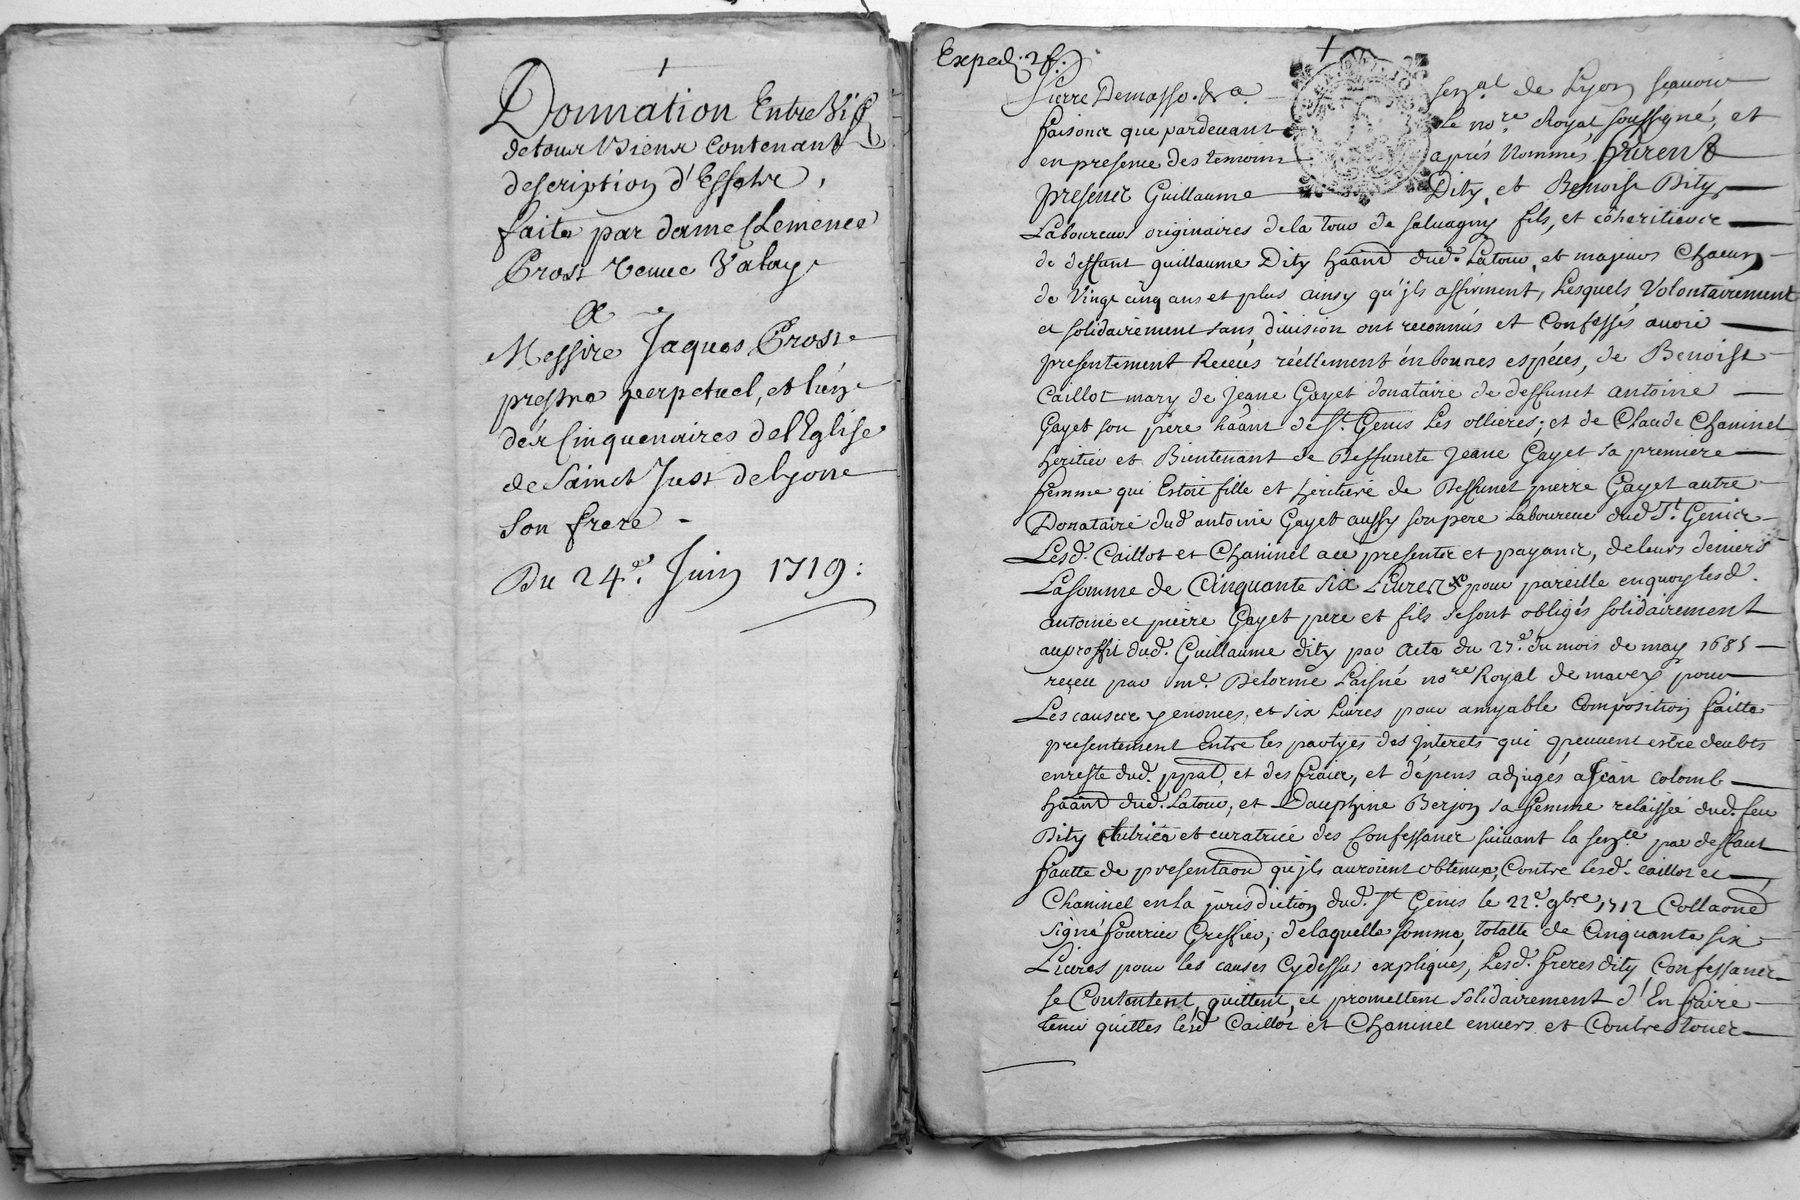 Donnation Entre Vifs
de tous Biens Contenant
description d'Effets,
faite par dame Clemence
Prost veuve Valouy
A
Messire Jaques Prost
prestre perpetuel, et l'un
des Cinquenaires de l'Eglise
de Sainct Just de Lyon
son frere -
Du 24e. Juin 1719:
Exped. 2f.
Pierre Demasso. &a. senal de Lyon sçavoir
faisons que pardevant Le nore. Royal soussigné, et
en presence des temoins aprés Nommés, furent
presents Guillaume Dity, et Benoist Dity,
Laboureurs originaires de la tour de salvagny fils, et coheritiers
de deffunt guillaume Dity haant dud. Latour, et majeurs Chacun
de Vingt cinq ans et plus ainsy qu'jls affirment, Lesquels Volontairement
et solidairement sans division ont reconnus et Confessés avoir
presentement Receus réellement en bonnes espéces, de Benoist
Caillot mary de Jeane Gayet donataire de deffunct antoine
Gayet son pére haant de St. Genis Les ollieres; et de Claude Chaninel
heritier et Bientenant de Deffuncte Jeane Gayet sa premiere
femme qui Estoit fille et heritiere de Deffunct pierre Gayet autre
Donataire dud antoine Gayet aussy son pere Laboureur dud St. Genis
Lesd. Caillot et Chaninel cy presents et payants, de leurs deniers
La somme de Cinquante six Livres pour pareille en quoy lesd.
antoine et pierre Gayet pere et fils se sont obligés solidairement
au proffit dud. Guillaume dity par Acte du 27e. du mois de may 1685
reçeu par me. Delorme Laisné nore Royal de marcy pour
Les causes y enoncés, et six Livres pour amyable Composition faitte
presentement Entre les partyes des Jnterets qui peuvent estre deubts
en reste dud. ppal, et des fraix, et dépens adjugés a Jean Colomb
haant dud. Latour, et Dauphine Berjon sa femme relaissée dud. feu
Dity tutrice et curatrice des Confessants suivant la senle par deffaut
fautte de presentaon qu'jls auroient obtenue, Contre lesd. Caillot et
Chaninel en la jurisdiction dud. St Genis le 22e. 9bre. 1712 Collaoné
signé fourrier Greffier; de laquelle somme, totalle de Cinquante six
Livres pour les causes Cydessus expliqués, Lesd. freres dity Confessants
se Contentent, quittent, et promettent solidairement d'En faire
tenir quittes lesd Caillot et Chaninel envers et Contre tous